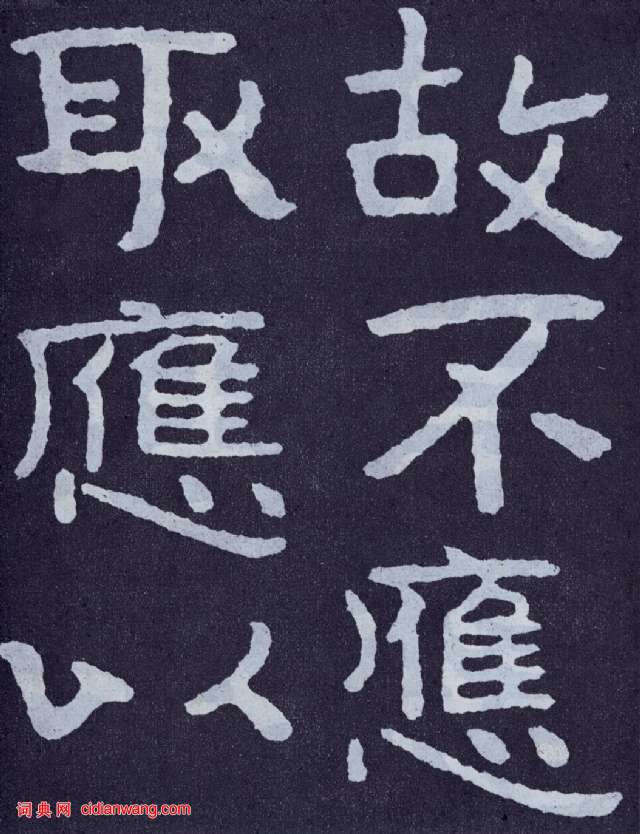 故不應
取應以
词典网 cidianwang.com